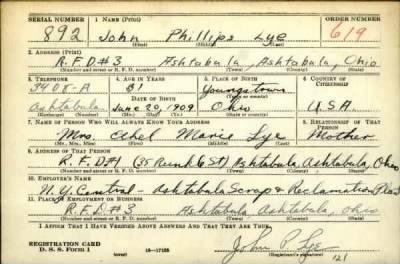 SERIAL NUMBER 1. Name (Print) ORDER NUMBER
892 John Phillips Lye 619
(First) (Middle) (Last)
2. Address (Print)
R.F.D.#3 Ashtabula, Ashtabula, Ohio
(Number and street or R. F. D. number) (Town) (County) (State)
3. Telephone 4. Age in Years 5. Place of Birth 6. Country of Citizenship
3408-A 31 Youngstown
Date of Birth
Ashtabula June 20, 1909 Ohio U.S.A.
7. Name of Person Who Will Always Know Your Address 8. Relationship of That Person
Mrs. Ethel Marie Lye Mother
(Mr., Mrs., Miss) (First) (Middle) (Last)
9. Address of That Person
R.F.D#1 (35 St) Ashtabula, Ashtabula, Ohio
(Number and street or R. F. D. number) (Town) (County) (State)
10. Employer's Name
N.Y. Central - Ashtabula Scrap & Reclamation Plant
11. Place of Employment or Business
R.F.D#3 Ashtabula, Ashtabula, Ohio
(Number and street or R. F. D. number) (Town) (County) (State)
I Affirm That I Have Verified Above Answers and That They Are True.
REGISTRATION CARD
D. S. S. Form 1 16-17105 John P. Lye
(Registrant's signature)
121